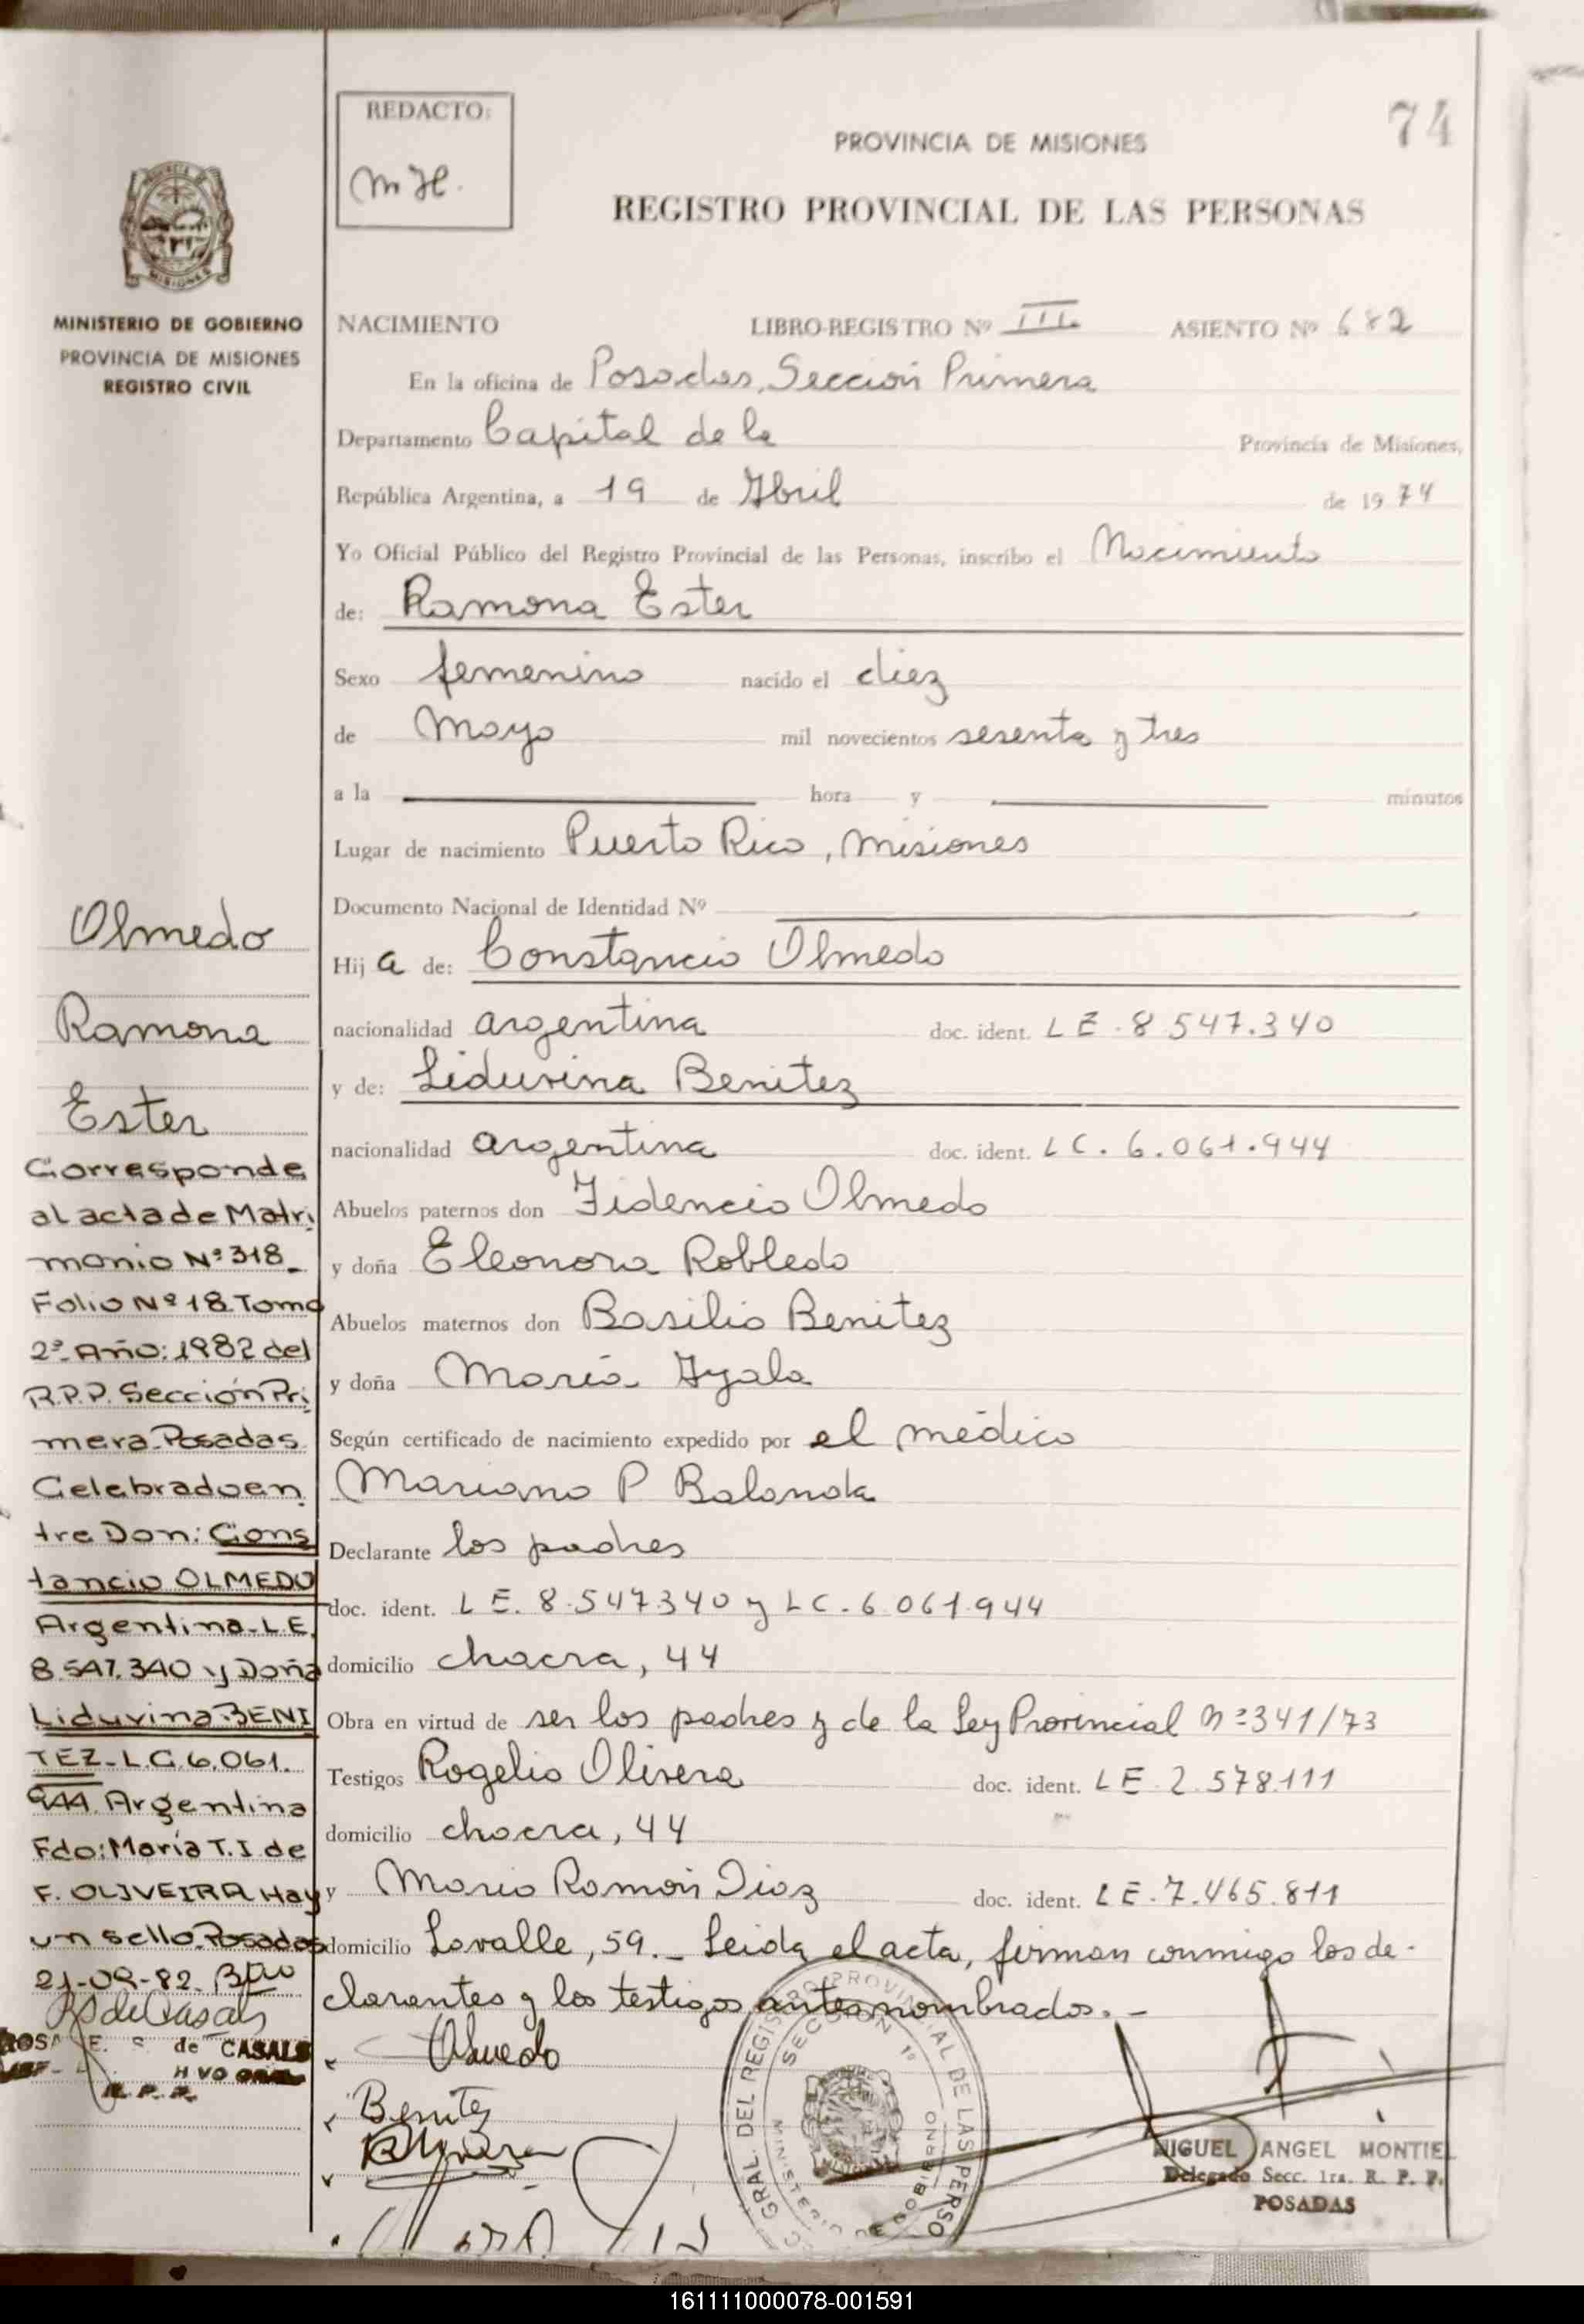 74
REDACTO:
m H.
PROVINCIA DE MISIONES
REGISTRO PROVINCIAL DE LAS PERSONAS
MINISTERIO DE GOBIERNO
PROVINCIA DE MISIONES
REGISTRO CIVIL
NACIMIENTO LIBRO-REGISTRO Nº III ASIENTO Nº 682
En la oficina de Posadas, Sección Primera
Departamento Capital de la Provincia de Misiones,
República Argentina, a 19 de Abril de 1974
Yo Oficial Público del Registro Provincial de las Personas, inscribo el Nacimiento
de: Ramona Ester
Sexo femenino nacido el diez
de Mayo mil novecientos sesenta y tres
a la hora y minutos
Lugar de nacimiento Puerto Rico, Misiones
Documento Nacional de Identidad Nº
Hija de: Constancio Olmedo
nacionalidad argentina doc. ident. LE. 8 547.340
y de: Liduvina Benitez
nacionalidad argentina doc. ident. LC. 6.061.944
Abuelos paternos don Fidencio Olmedo
y doña Eleonora Robledo
Abuelos maternos don Basilio Benitez
y doña María Ayala
Según certificado de nacimiento expedido por el médico
Mariano P
Declarante los padres
doc. ident. LE. 8.547.340 y LC. 6.061.944
domicilio chacra, 44
Obra en virtud de ser los padres y de la Ley Provincial nº 341/73
Testigos Rogelio Olivera doc. ident. LE 2.578.111
domicilio chacra, 44
y Mario Ramón Diaz doc. ident. LE. 7.465.811
domicilio Lavalle, 59._ Leida el acta, firman conmigo los de-
clarantes y los testigos antes nombrados.-
Olmedo
Benitez
Olmedo
Ramona
Ester
Corresponde
al acta de Matri
monio Nº 318_
Folio Nº 18 Tomo
2º Año: 1982 del
R.P.P. Sección Pri
mera Posadas
Celebrado en
tre Don: Cons
tancio OLMEDO
Argentina-L.E.
8.547.340 y Doña
Liduvina BENI
TEZ-L.C. 6.061.
944. Argentina
Fdo: María T.I. de
F. OLIVEIRA Hay
un sello Posadas
21-09-82.
RS de Casals
ROSA E. S. de CASALS
R. P. P.
GRAL. DEL REGISTRO PROVINCIAL DE LAS PERSO
SECCION 1º
MINISTERIO DE GOBIERNO
MIGUEL ANGEL MONTIE
Delegado Secc. 1ra. R. P. P.
POSADAS
161111000078-001591